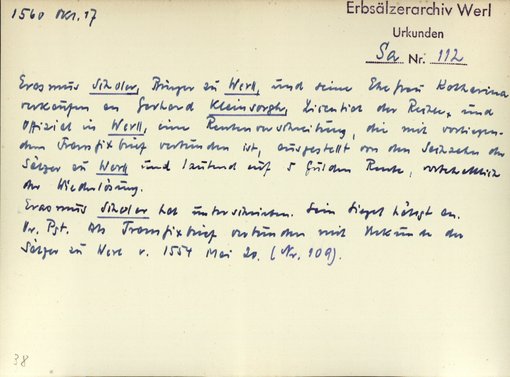 1560 Okt. 17
Erbsälzerarchiv Werl
Urkunden
Sa Nr. 112
Erasmus Schöler, Bürger zu Werl, und seine Ehefrau Katharina
verkaufen an Gerhard Kleinsorgh, Lizentiat der Rechte, und
Offizial in Werll, eine Rentenverschreibung, die mit vorliegen-
dem Transfixbrief verbunden ist, ausgestellt von den Sechzehn der
Sälzer zu Werl und lautend auf 5 Gulden Rente, vorbehaltlich
der Wiederlösung.
Erasmus Schöler hat unterschrieben. Sein Siegel hängt an.
Or. Pgt. Als Transfixbrief verbunden mit Urkunde der
Sälzer zu Werl v. 1554 Mai 20. (Nr. 109).
38